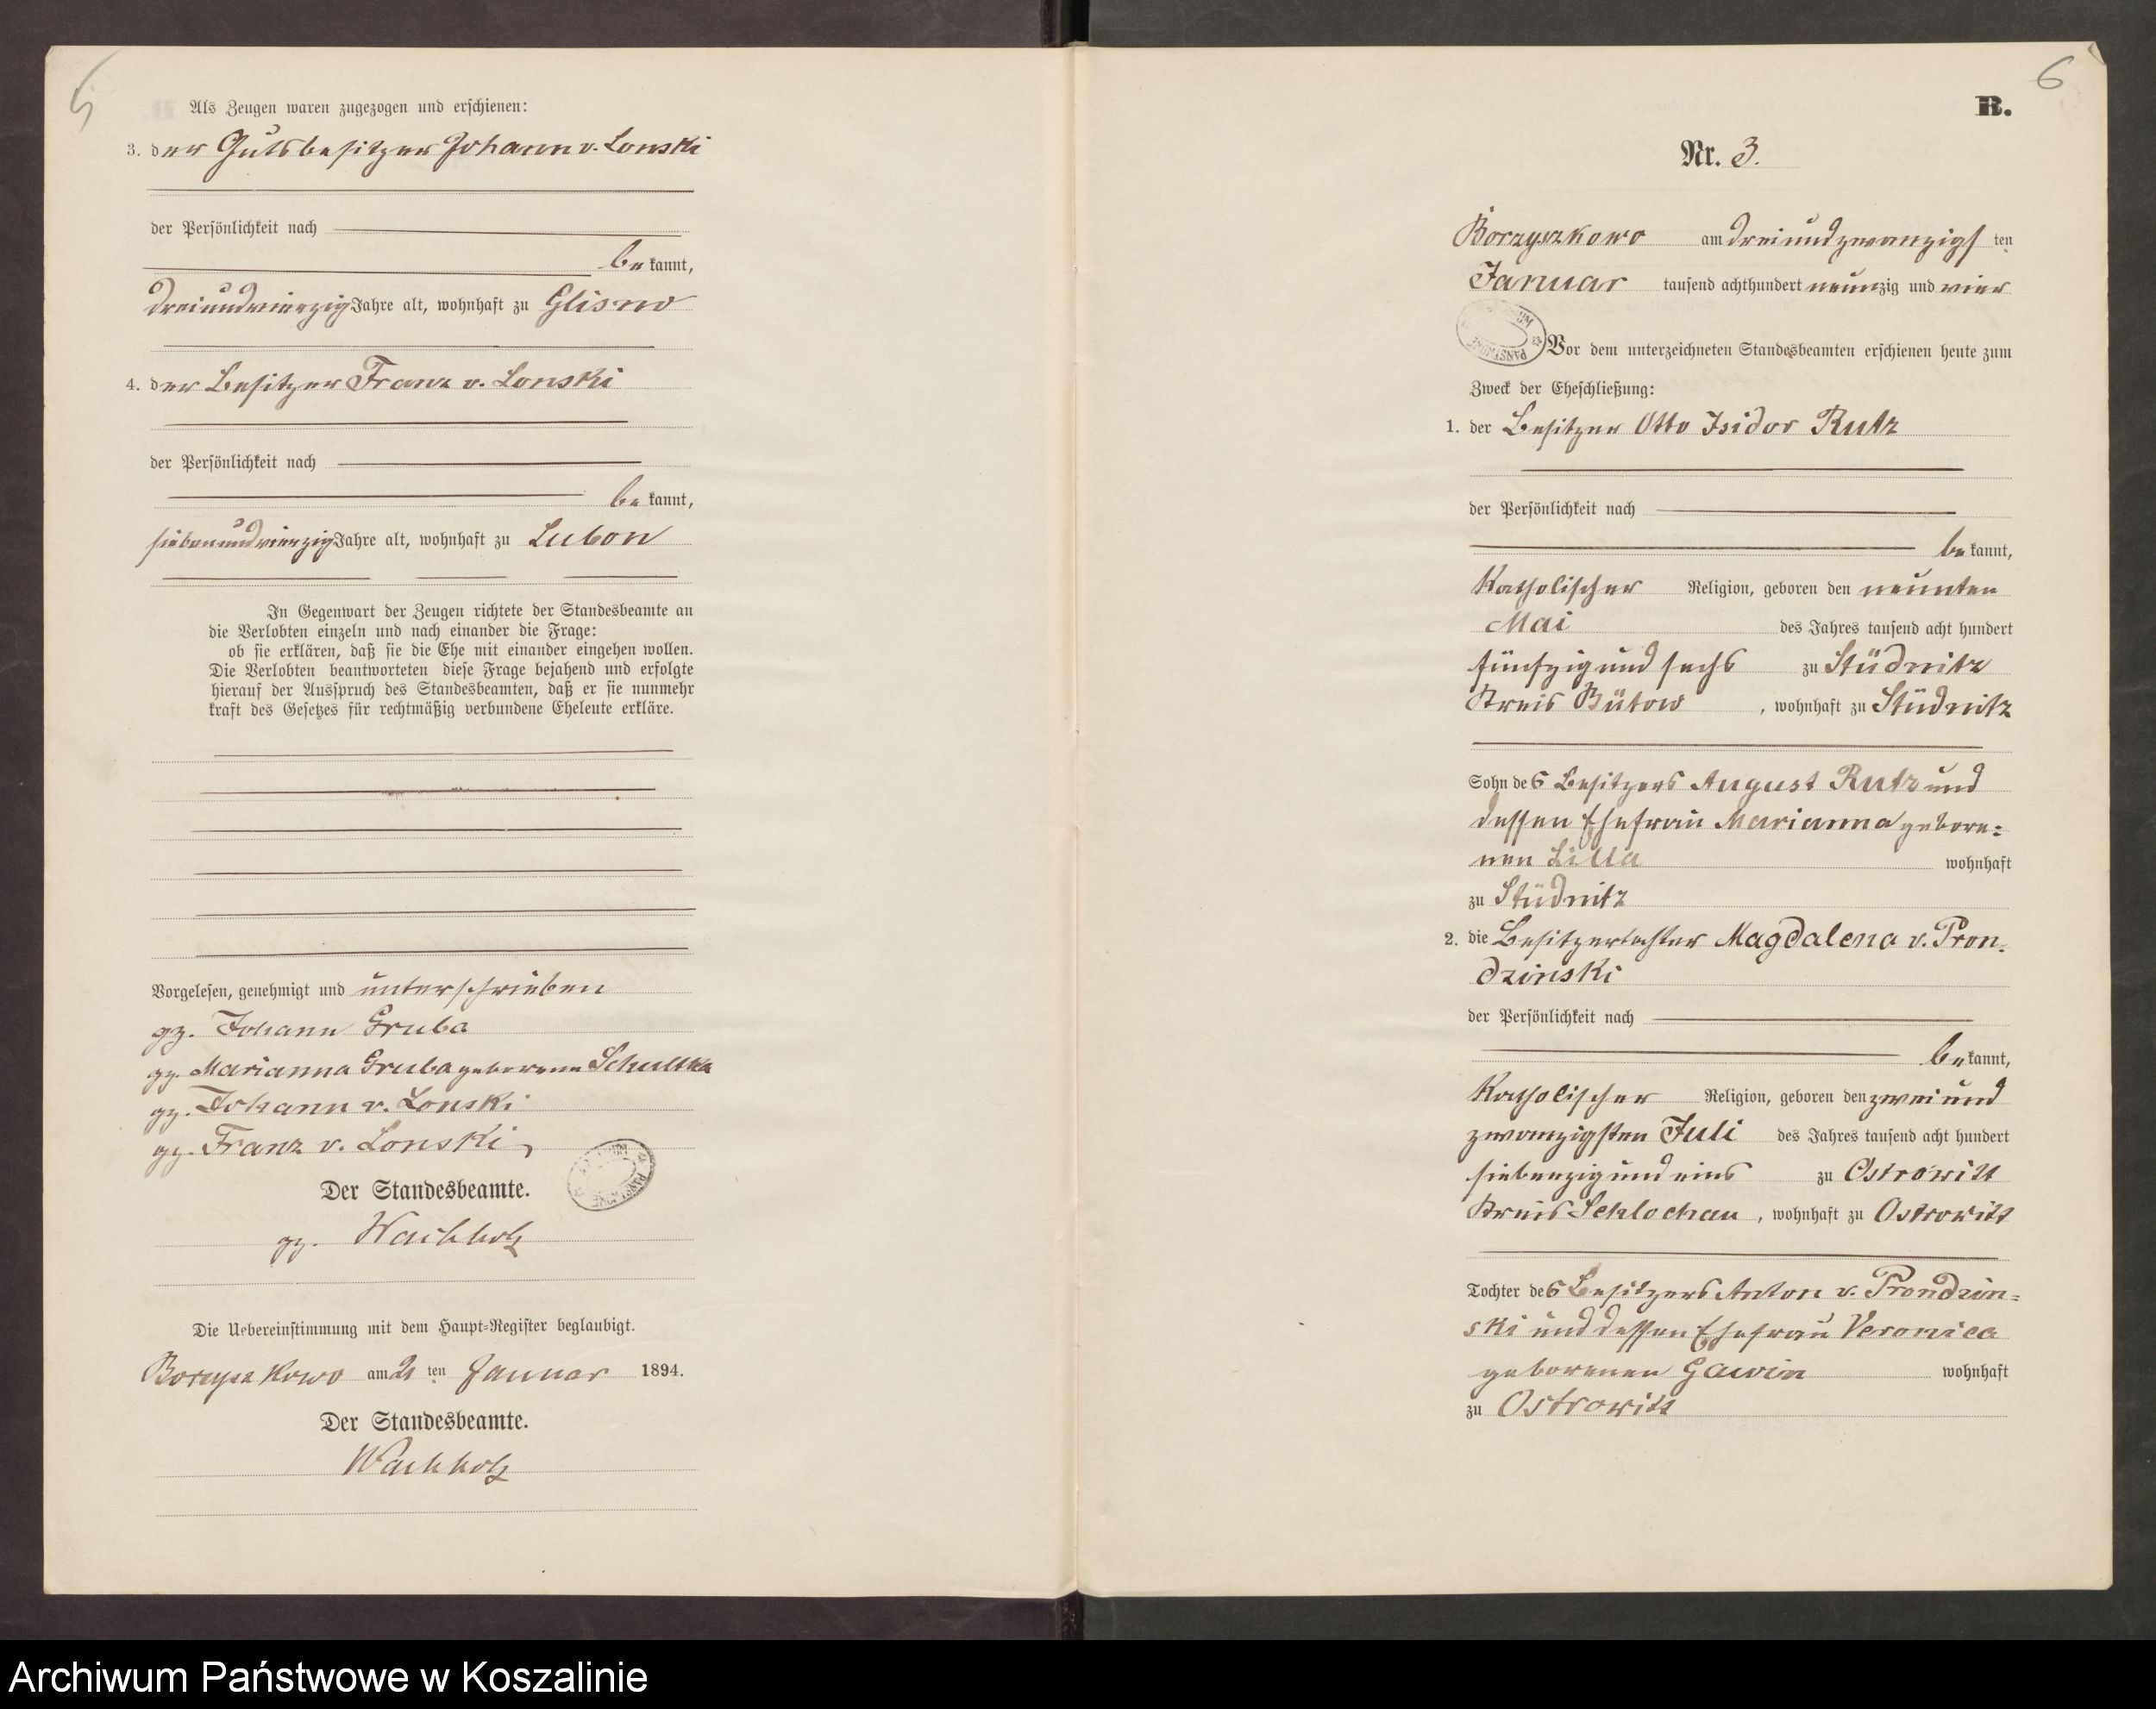 5
Als Zeugen waren zugezogen und erschienen:
3. der Gutsbesitzer Johann v. Lonski
der Persönlichkeit nach
bekannt,
dreiundvierzig Jahre alt, wohnhaft zu Glisno
4. der Besitzer Franz v. Lonski
der Persönlichkeit nach
bekannt,
siebenundvierzig Jahre alt, wohnhaft zu Lubon
In Gegenwart der Zeugen richtete der Standesbeamte an
die Verlobten einzeln und nach einander die Frage:
ob sie erklären, daß sie die Ehe mit einander eingehen wollen.
Die Verlobten beantworteten diese Frage bejahend und erfolgte
hierauf der Ausspruch des Standesbeamten, daß er sie nunmehr
kraft des Gesetzes für rechtmäßig verbundene Eheleute erkläre.
Vorgelesen, genehmigt und unterschrieben
gz. Johann Gruba
gz. Marianna Gruba geborene Schultka
gz. Johann v. Lonski
gz. Franz v. Lonski
Der Standesbeamte.
gz. Wachholz
Die Uebereinstimmung mit dem Haupt-Register beglaubigt.
Borzyszkowo am 21 ten Januar 1894.
Der Standesbeamte.
Wachholz
6
B.
Nr. 3.
Borzyszkowo am dreiundzwanzigsten
Januar tausend achthundert neunzig und vier
Vor dem unterzeichneten Standesbeamten erschienen heute zum
Zweck der Eheschließung:
1. der Besitzer Otto Isidor Rutz
der Persönlichkeit nach
bekannt,
Katholischer Religion, geboren den neunten
Mai des Jahres tausend acht hundert
fünfzig und sechs zu Stüdnitz
Kreis Bütow, wohnhaft zu Stüdnitz
Sohn des Besitzers August Rutz und
dessen Ehefrau Marianna gebore-
nen Lilla wohnhaft
zu Stüdnitz
2. die Besitzertochter Magdalena v. Pron-
dzinski
der Persönlichkeit nach
bekannt,
Katholischer Religion, geboren den zwei und
zwanzigsten Juli des Jahres tausend acht hundert
siebenzig und eins zu Ostrowitt
Kreis Schlochau, wohnhaft zu Ostrowitt
Tochter des Besitzers Anton v. Prondzin-
ski und dessen Ehefrau Veronica
geborenen Gawin wohnhaft
zu Ostrowitt
Archiwum Państwowe w Koszalinie